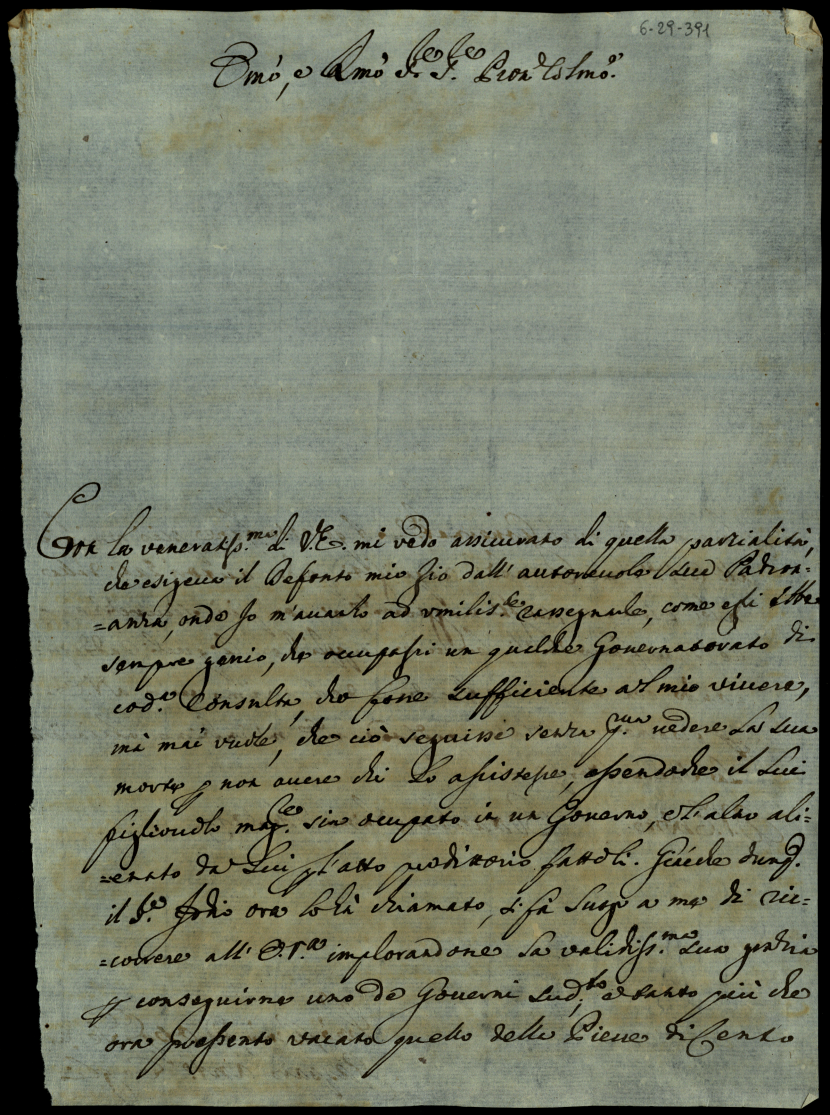 6-29-391
Emo, e Rmo Sig.re Sig.re Pron Colmo.
Con la veneratiss.ma di V.E. mi vedo assicurato di quella parzialità,
che esigeva il Defonto mio Zio dall' autorevole sua Padron=
=anza, onde Io m'avanzo ad umilis.te rassegnarle, come egli ebbe
sempre genio, che occupassi un qualche Governatorato di
cod.a Consulta, che fosse sufficiente al mio vivere,
mà mai volle, che ciò seguisse senza p.ma vedere la sua
morte p non avere chi Lo assistesse, essendoche il Lui
figliuolo mag.re sia occupato in un Governo, e l'altro ali=
=enato da Lui p l'atto proditorio fattoli. Giàche dunq.
il S.r Iddio ora lo hà chiamato, si fà luogo a me di ric=
=correre all' E.V.ra implorandone la validiss.ma sua grazia
p conseguirne uno de Governi sud.ti, e tanto più che
ora presento vacato quello della Pieve di Cento